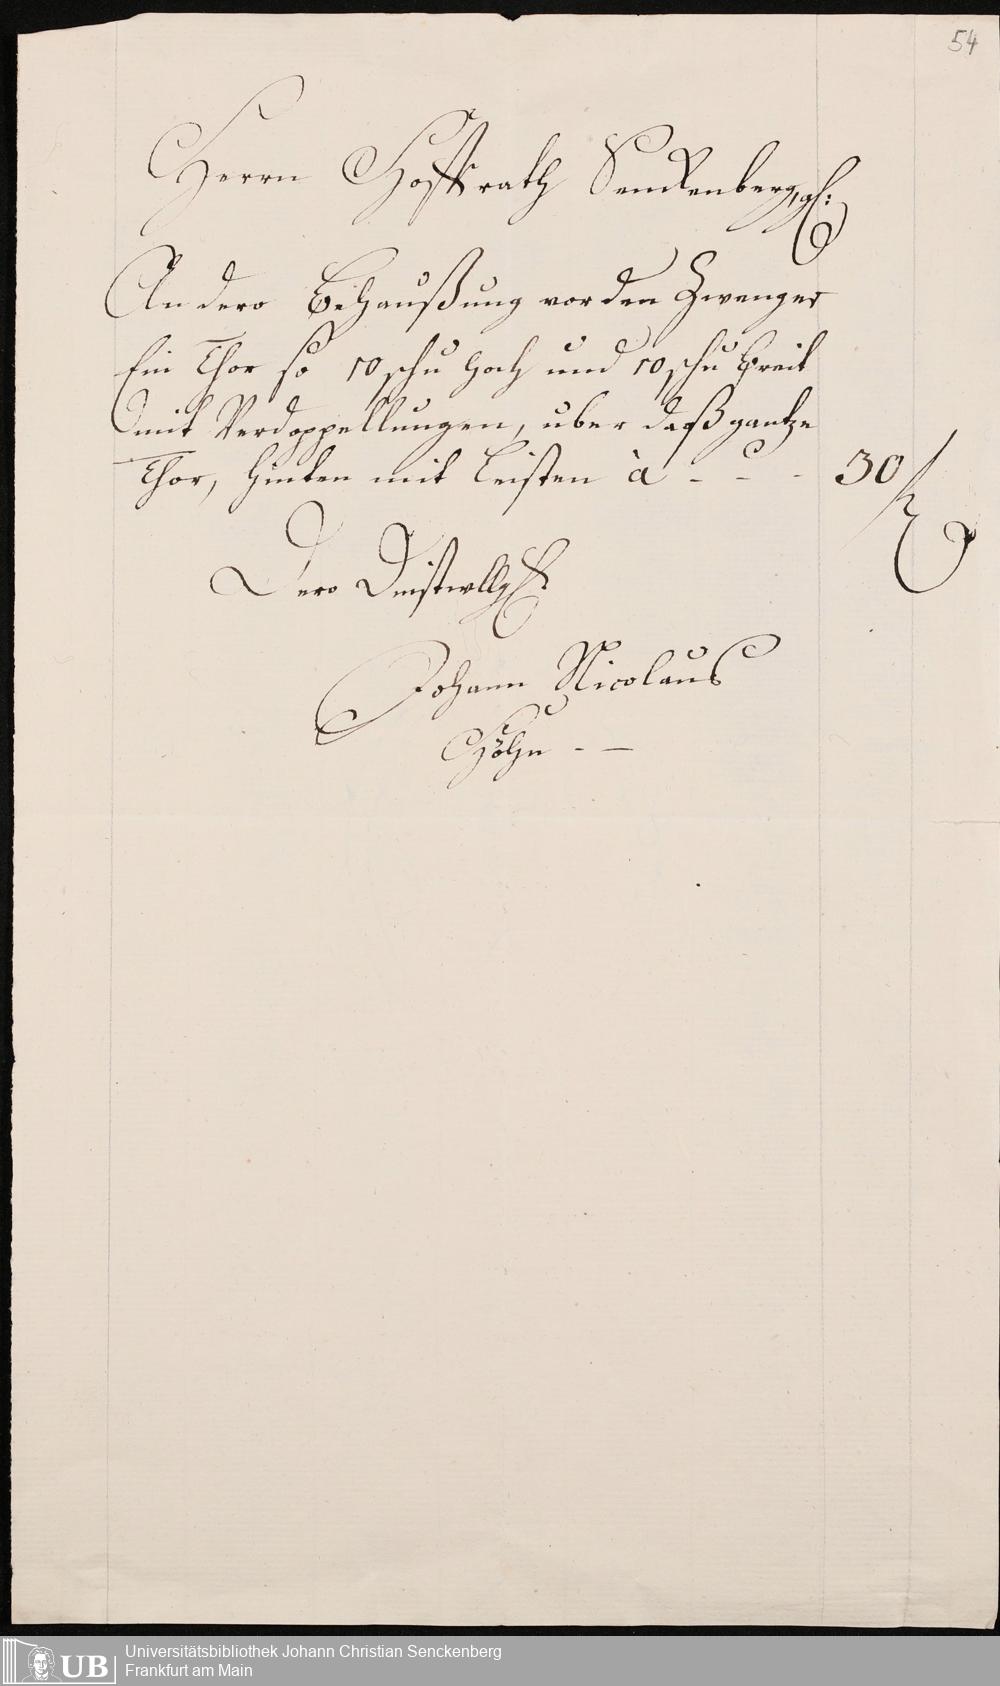 54
Herrn Hoffrath Senckenberg,
An dero Behaußung vor den Zwenger
Ein Thor so 10 schu hoch und 10 schu breit
mit Verdoppellungen, uber daß gantze
Thor, hinten mit Leisten à - - - 30
Dero Dinstwllgster
Johann Nicolaus
Höhn - -
UB
Universitätsbibliothek Johann Christian Senckenberg
Frankfurt am Main